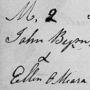 M, 2
John Byrne
&
Ellen O Meara